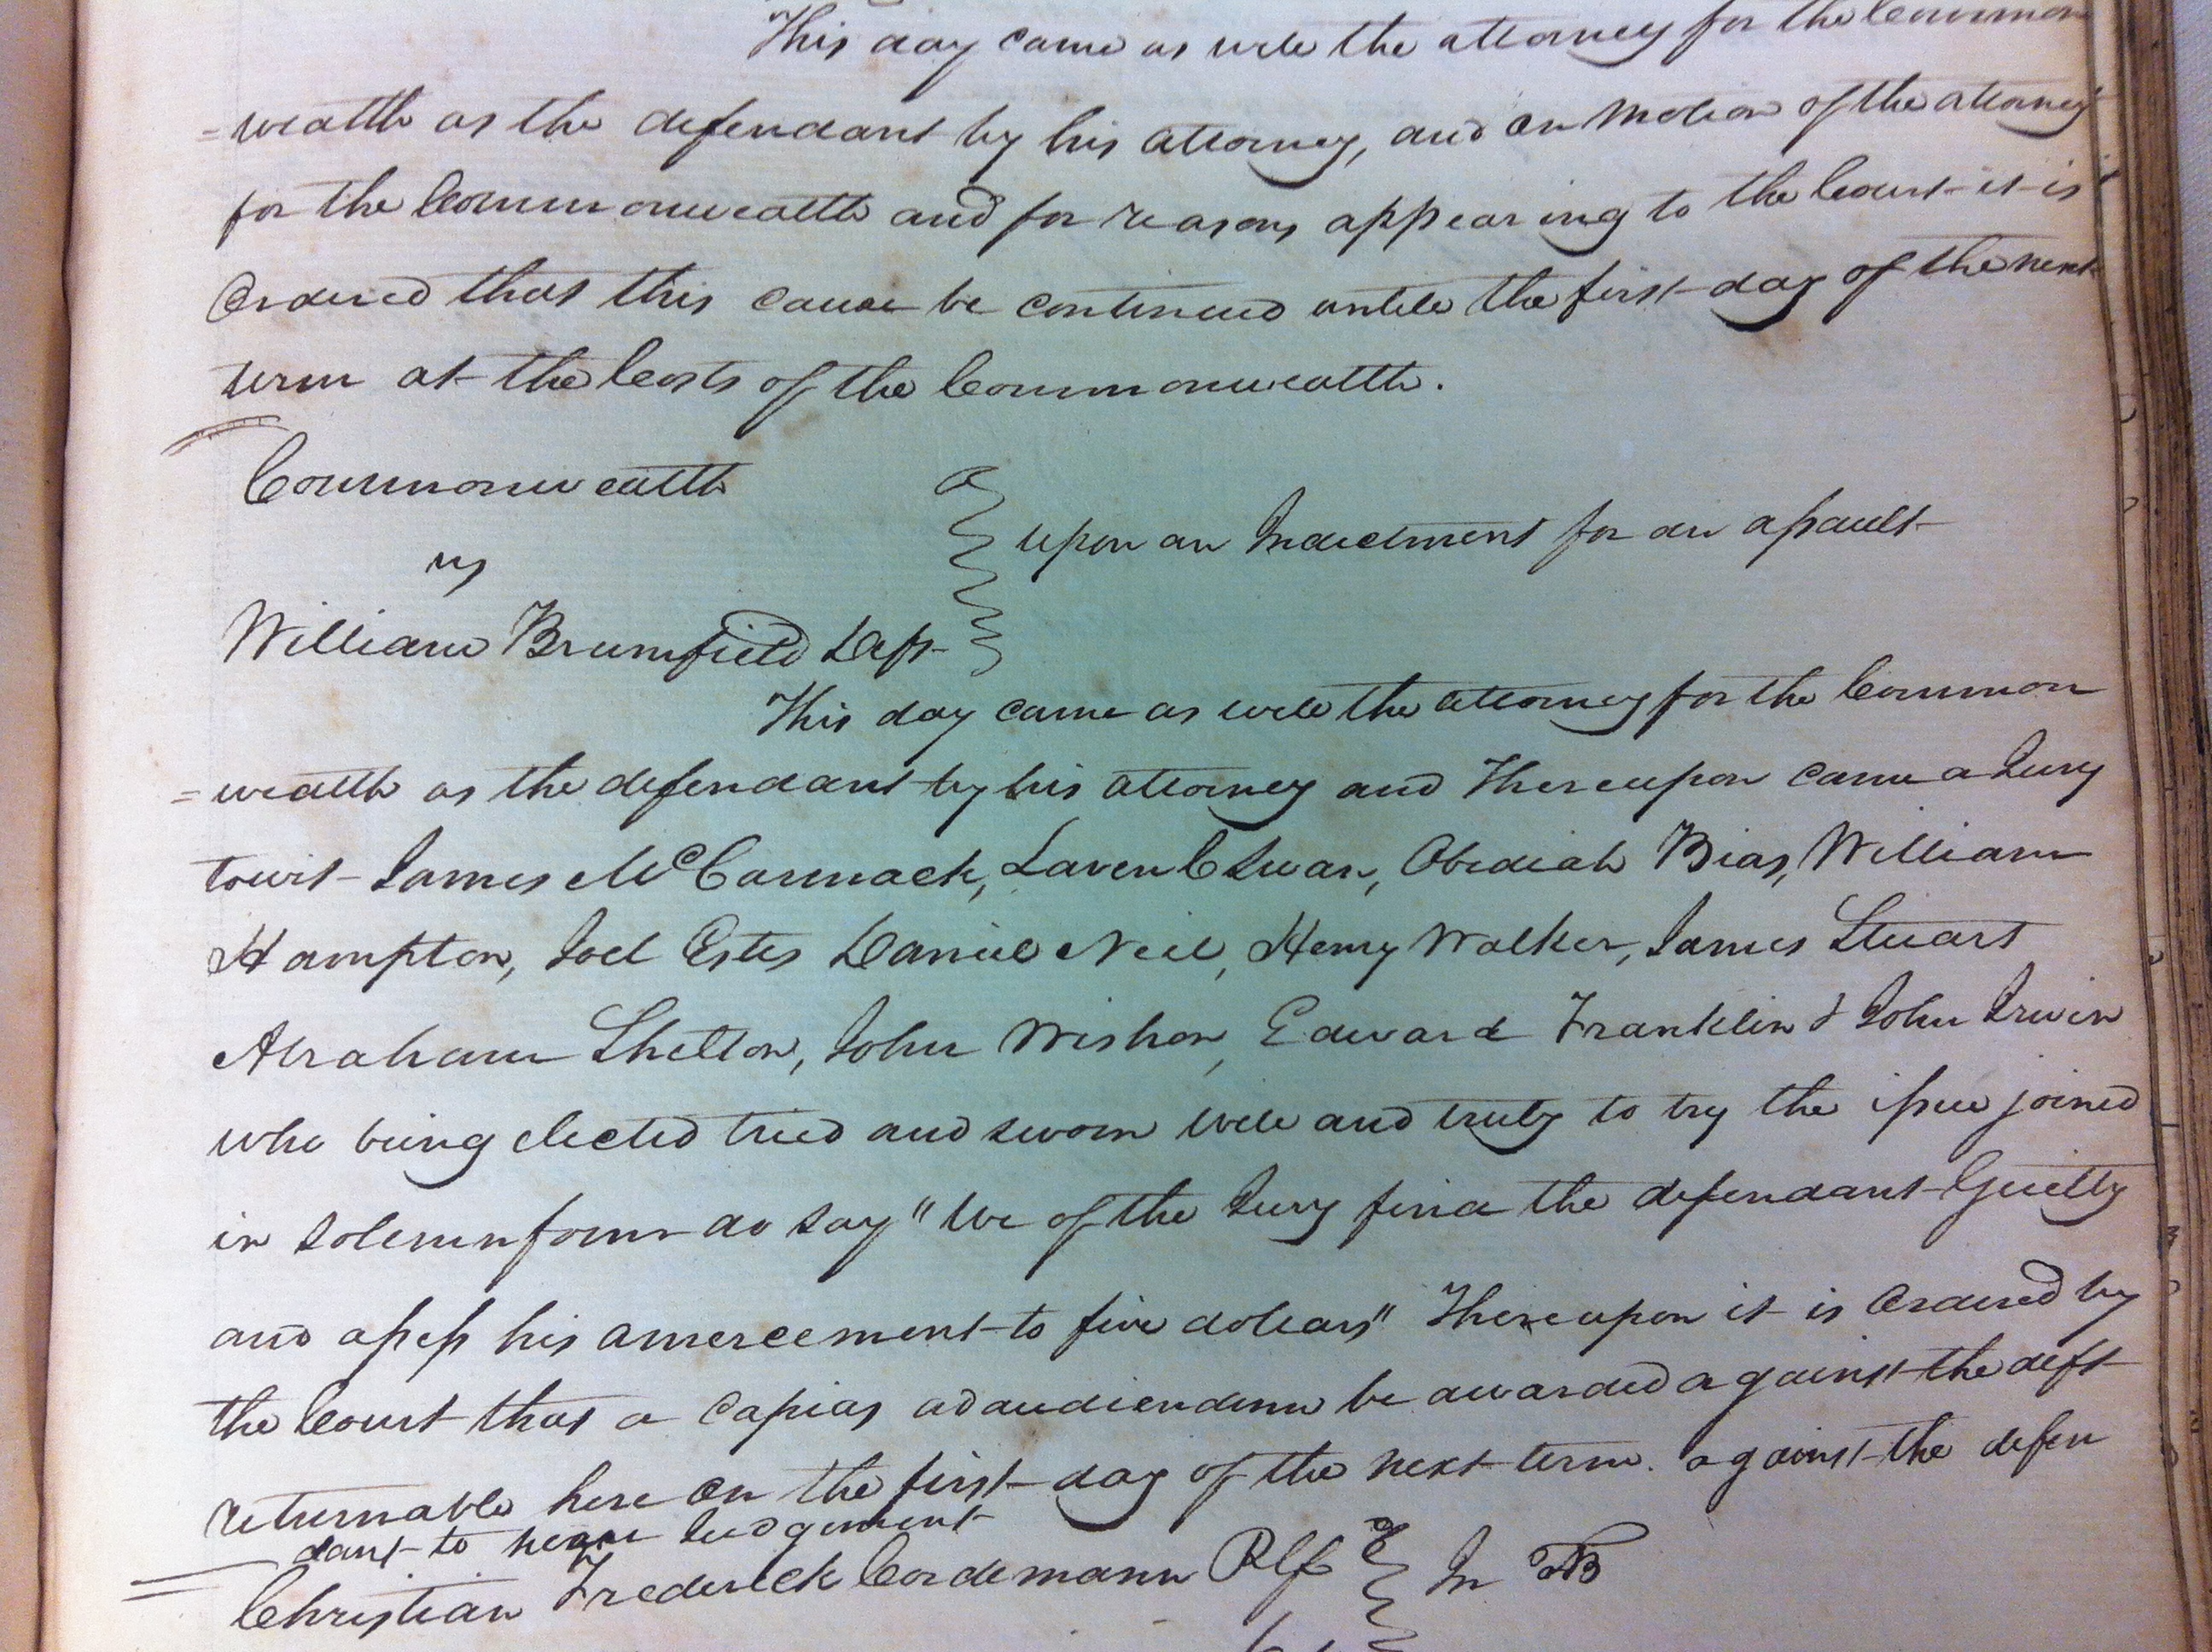 This day came as well the attorney for the Common
=wealth as the defendant by his attorney, and on motion of the attorney
for the Commonwealth and for reasons appearing to the Court it is
Ordered that this cause be continued untill the first day of the next
term at the Costs of the Commonwealth.
Commonwealth
vs
upon an Indictment for an assault
William Brumfield Deft
This day came as well the attorney for the Common
=wealth as the defendant by his attorney and Thereupon came a Jury
towit James McCormack, Laven C Swan, Obediah Bias, William
Hampton, Joel Estes Daniel Neil, Henry Walker, James Stuart
Abraham Shelton, John Wishon, Edward Franklin & John Irwin
who being elected tried and sworn well and truly to try the issue joined
in solemn form do say "We of the Jury find the defendant Guilty
and assess his amercement to five dollars" Thereupon it is Ordered by
the Court that a Capias ad audiendum be awarded against the deft
returnable here on the first day of the next term. against the defen
dant to hear Judgement
Christian Frederick Cordemann Plf In